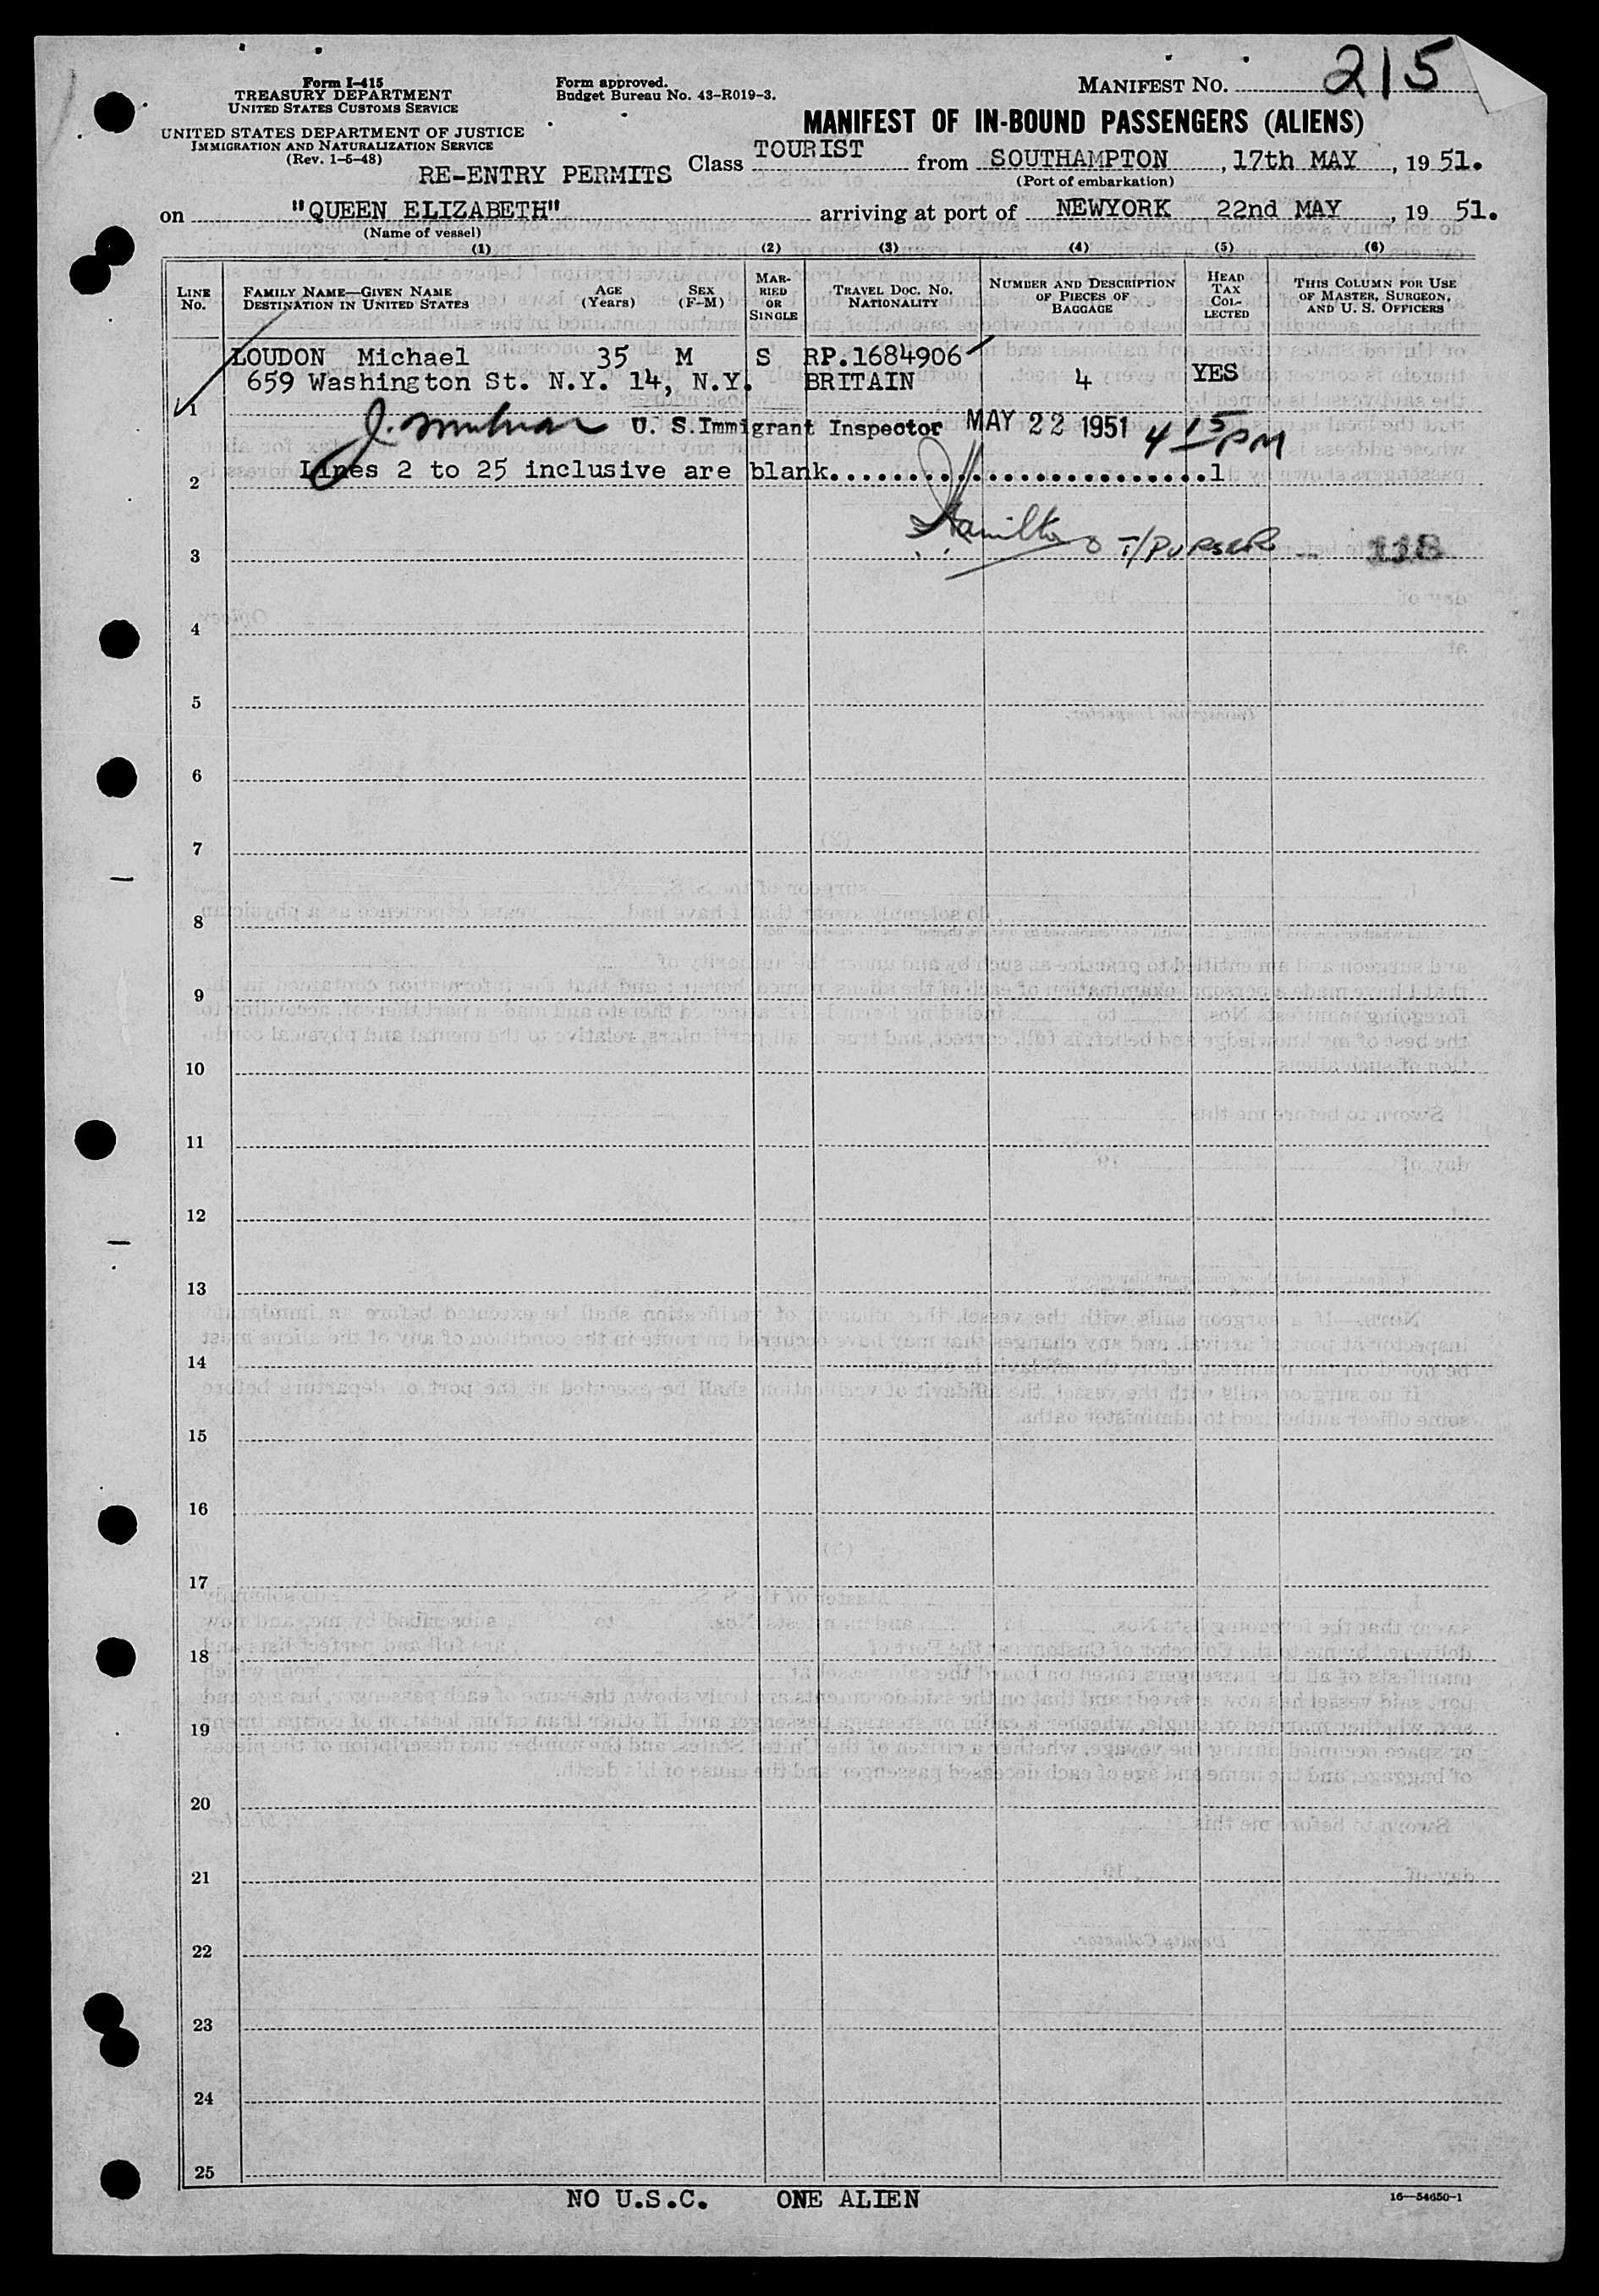 Form I-415
TREASURY DEPARTMENT
UNITED STATES CUSTOMS SERVICE
UNITED STATES DEPARTMENT OF JUSTICE
IMMIGRATION AND NATURALIZATION SERVICE
(Rev. 1-5-48)
Form approved.
Budget Bureau No. 43-R019-3.
MANIFEST NO. 215
MANIFEST OF IN-BOUND PASSENGERS (ALIENS)
RE-ENTRY PERMITS Class TOURIST from SOUTHAMPTON, 17th MAY, 1951.
(Port of embarkation)
on "QUEEN ELIZABETH" arriving at port of NEWYORK 22nd MAY, 19 51.
(Name of vessel)
(1) (2) (3) (4) (5) (6)
LINE No.
FAMILY NAME—GIVEN NAME
DESTINATION IN UNITED STATES
AGE (Years)
SEX (F-M)
MARRIED OR SINGLE
TRAVEL DOC. NO.
NATIONALITY
NUMBER AND DESCRIPTION OF PIECES OF BAGGAGE
HEAD TAX COLLECTED
THIS COLUMN FOR USE OF MASTER, SURGEON, AND U. S. OFFICERS
LOUDON Michael 35 M S RP.1684906
659 Washington St. N.Y. 14, N.Y. BRITAIN 4 YES
1
J. U. S. Immigrant Inspector MAY 22 1951 4 15 PM
Lines 2 to 25 inclusive are blank..........................1
2
Hamilton T/PURSER
3
4
5
6
7
8
9
10
11
12
13
14
15
16
17
18
19
20
21
22
23
24
25
NO U.S.C. ONE ALIEN
16—54650-1